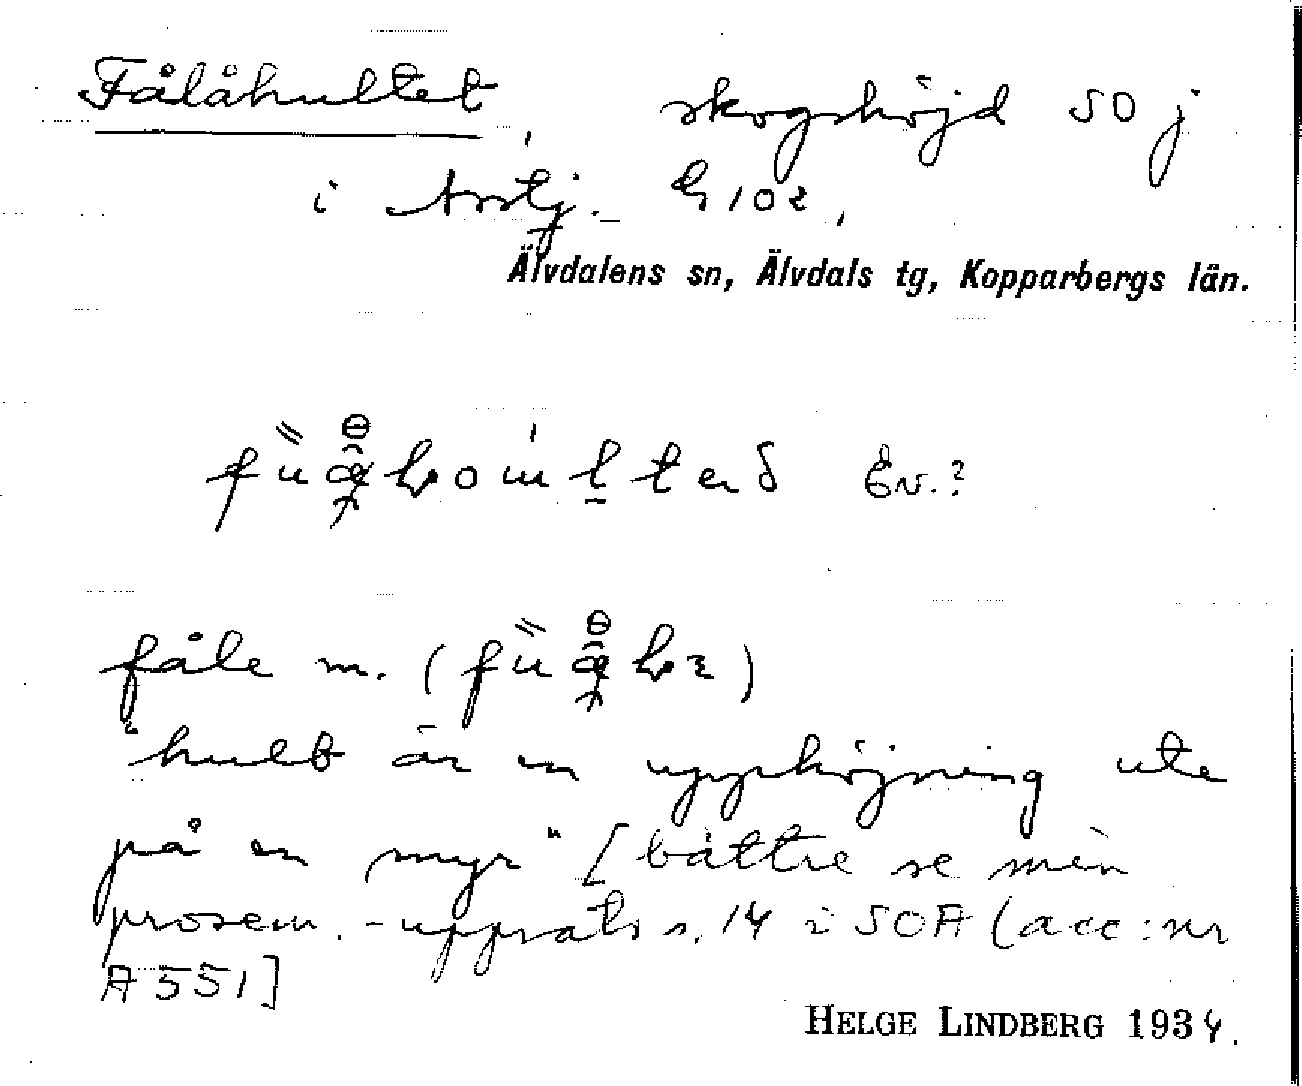 Fålåhultet, skogshöjd 50 j
i
102,
Älvdalens sn, Älvdals tg, Kopparbergs län.
Ev.?
fåle m.
"hult är en upphöjning ute
på en myr" [bättre se min
prosem.-uppsats s. 14 i SOA (acc:nr
A 551]
HELGE LINDBERG 1934.